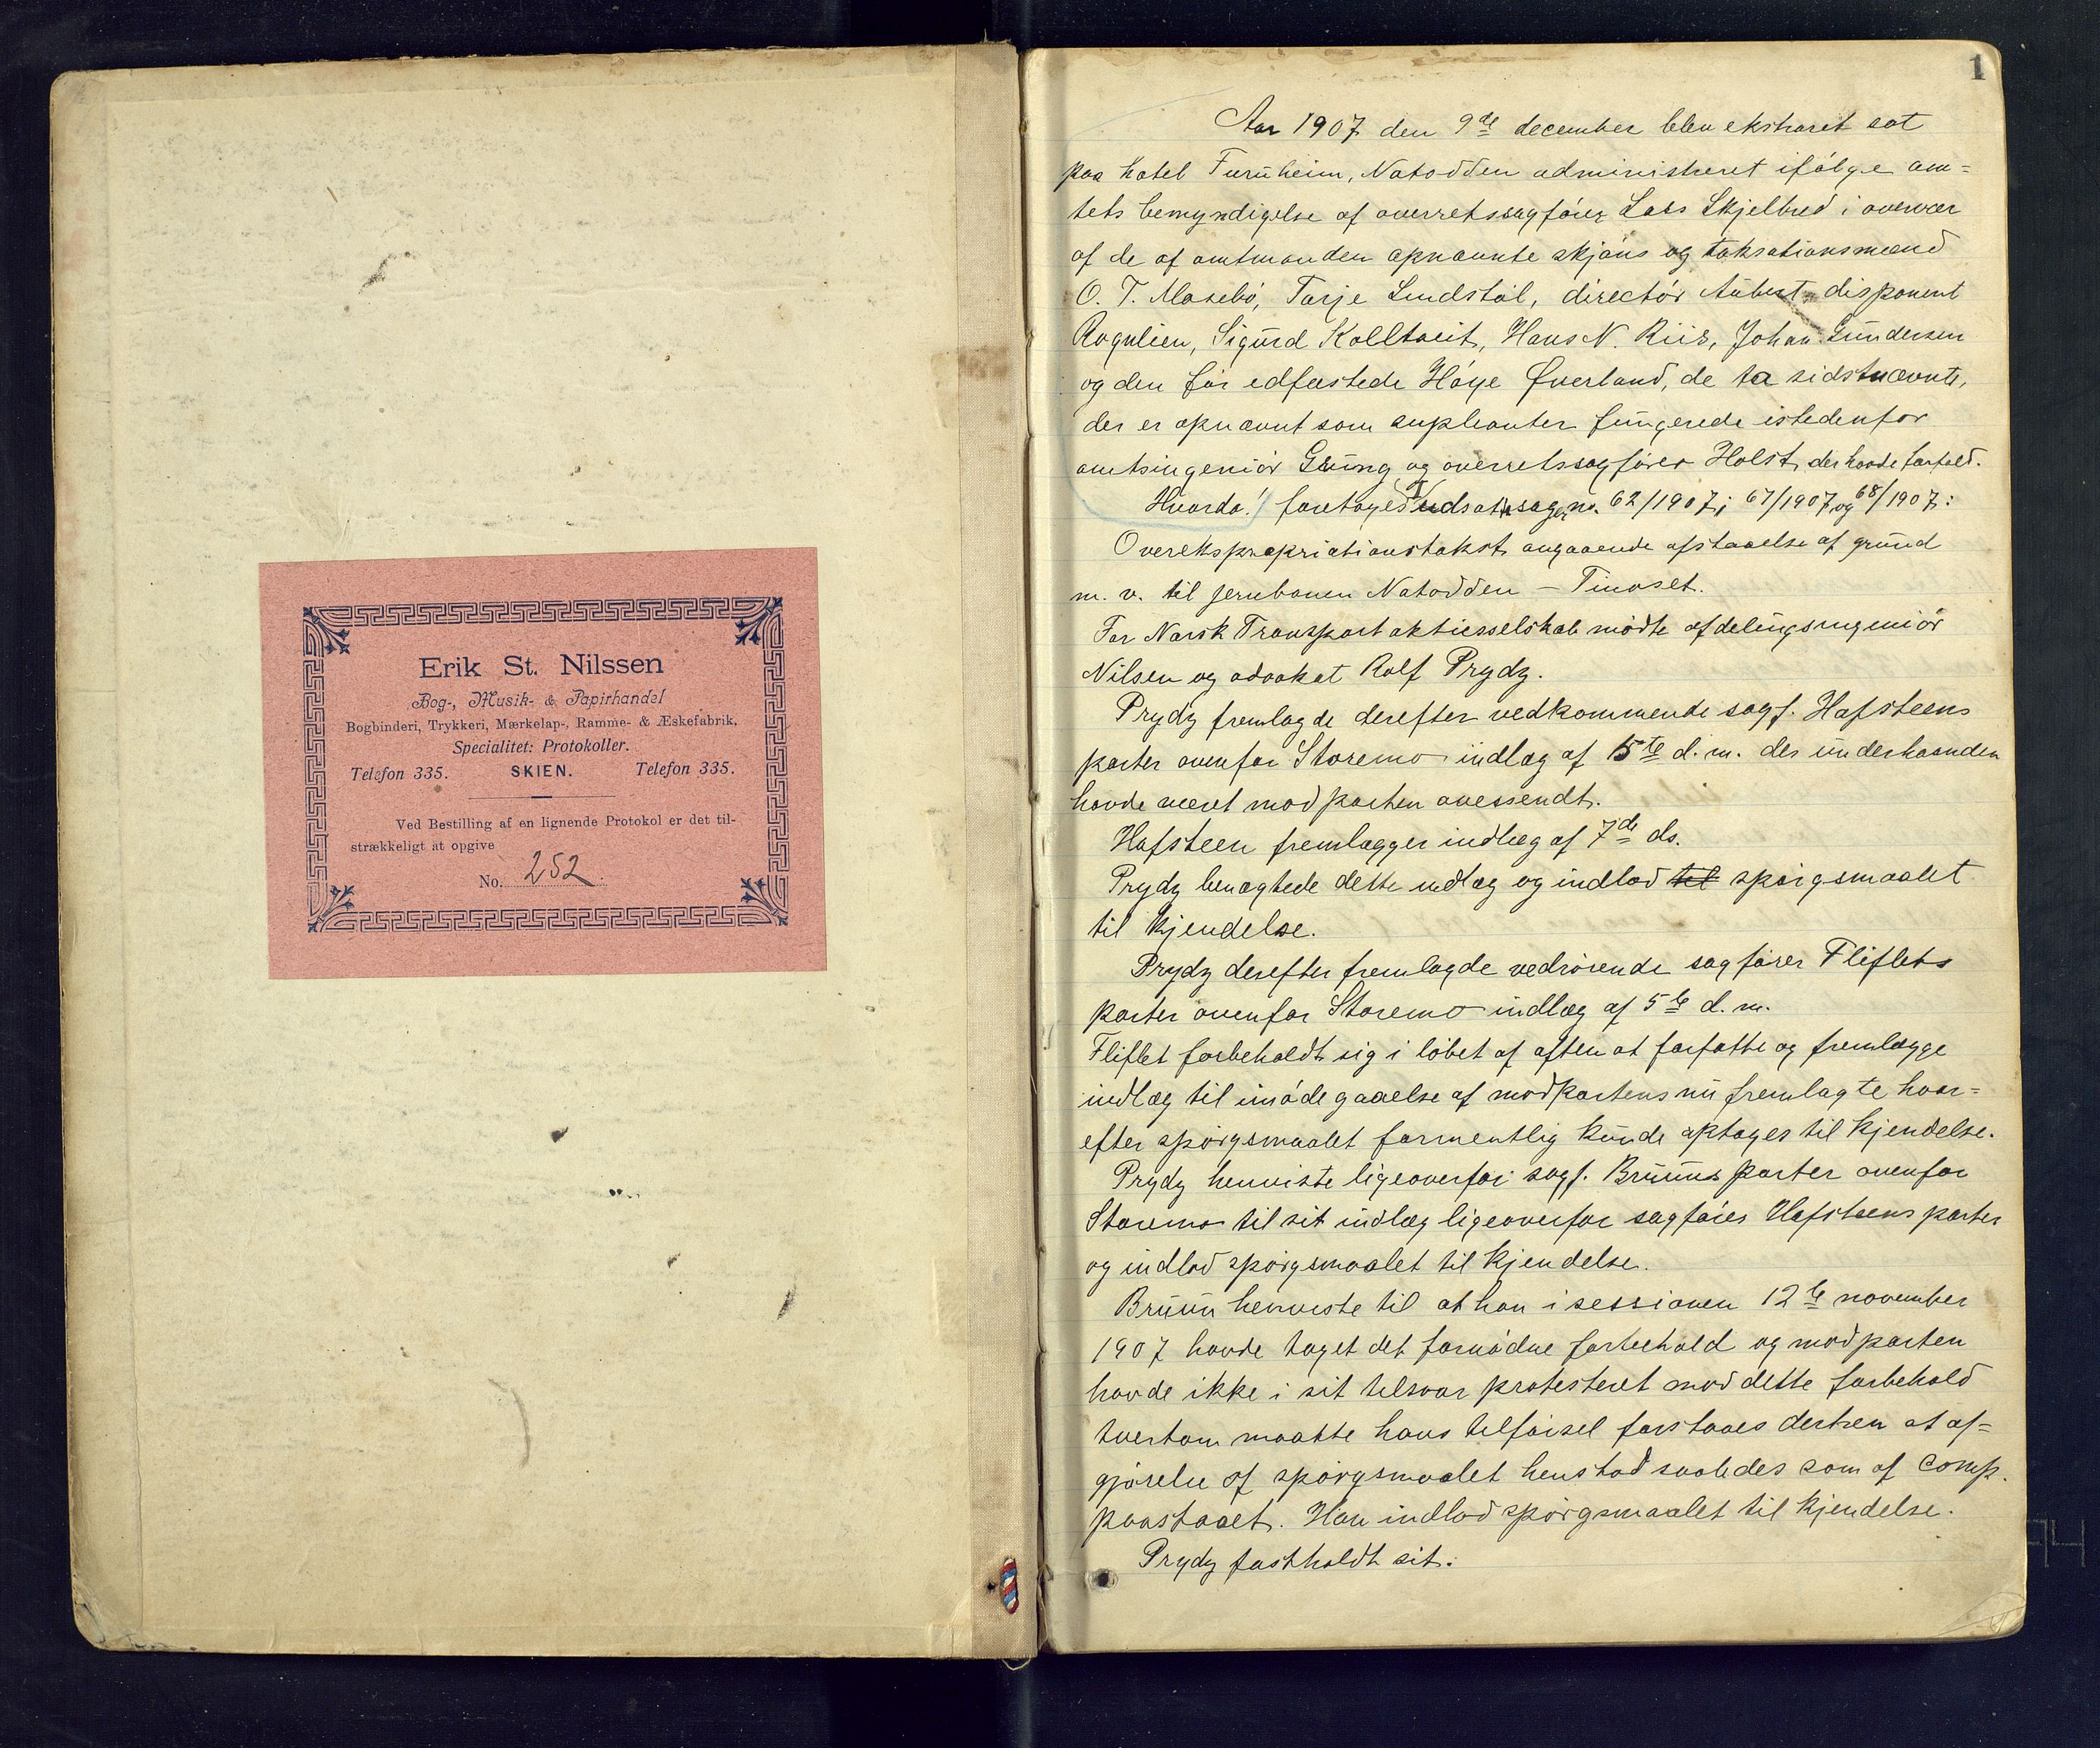 Erik St. Nilssen
Bog-, Musik- & Papirhandel
Bogbinderi, Trykkeri, Mærkelap-, Ramme- & Æskefabrik.
Specialitet: Protokoller.
Telefon 335. SKIEN. Telefon 335.
Ved Bestilling af en lignende Protokol er det til-
strækkeligt at opgive
No. 252
1
Aar 1907 den 9de december blev ekstraret sat
paa hotel Furuheim, Notodden administreret ifølge am=
tets bemyndigelse af overretssagfører Lars Skjelbred i overvær
af de af amtmanden opnævnte skjøns og taksationsmænd
O. T. Mosebø, Tarje Lindstøl, directør Aubert, disponent
Rognlien, Sigurd Kolltveit, Hans N. Riis, Johan Gundersen
og den før edfæstede Høye Øverland, de to sidstnævnte,
der er opnævnt som supleanter fungerede istedenfor
amtsingeniør Grüng og overretssagfører Holst, der havde forfald.
Hvorda! foretages udsat sager no. 62/1907; 67/1907 og 68/1907:
Overekspropriationstakst angaaende afstaaelse af grund
m. v. til jernbanen Notodden – Tinoset.
For Norsk Transportaktieselskab mødte afdelingsingeniør
Nilsen og advokat Rolf Prydz.
Prydz fremlagde derefter vedkommende sagf. Hafsteens
parter ovenfor Storemo indlæg af 5te d. m. der underhaanden
havde været modparten oversendt.
Hafsteen fremlægger indlæg af 7de ds.
Prydz benægtede dette indlæg og indlod til spørgsmaalet
til kjendelse.
Prydz derefter fremlagde vedrørende sagfører Fliflets
parter ovenfor Storemo indlæg af 5te d. m.
Fliflet forbeholdt sig i løbet af aften at forfatte og fremlægge
indlæg til imødegaaelse af modpartens nu fremlagte hvor=
efter spørgsmaalet formentlig kunde optages til kjendelse.
Prydz henviste ligeoverfor sagf. Bruuns parter ovenfor
Storemo til sit indlæg ligeoverfor sagfører Hafsteens parter
og indlod spørgsmaalet til kjendelse.
Bruun henviste til at han i sessionen 12te november
1907 havde taget det fornødne forbehold og modparten
havde ikke i sit tilsvar protesteret mod dette forbehold
tvertom maatte hans tilførsel forstaaes derhen at af=
gjørelse af spørgsmaalet henstod saaledes som af comp.
paastaaet. Han indlod spørgsmaalet til kjendelse.
Prydz fastholdt sit.